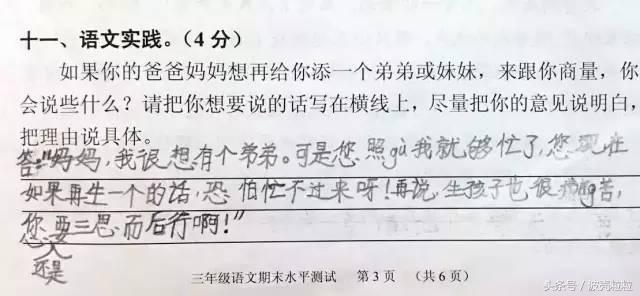 十一、语文实践。(4分)
如果你的爸爸妈妈想再给你添一个弟弟或妹妹，来跟你商量，你
会说些什么？请把你想要说的话写在横线上，尽量把你的意见说明白，
把理由说具体。
答："妈妈，我很想有个弟弟。可是您照gù我就够忙了，您现在
如果再生一个的话，恐怕忙不过来呀！再说，生孩子也很苦，
您要三思而后行啊！"
还是
三年级语文期末水平测试 第3页 (共6页)
头条号／波壳粒粒